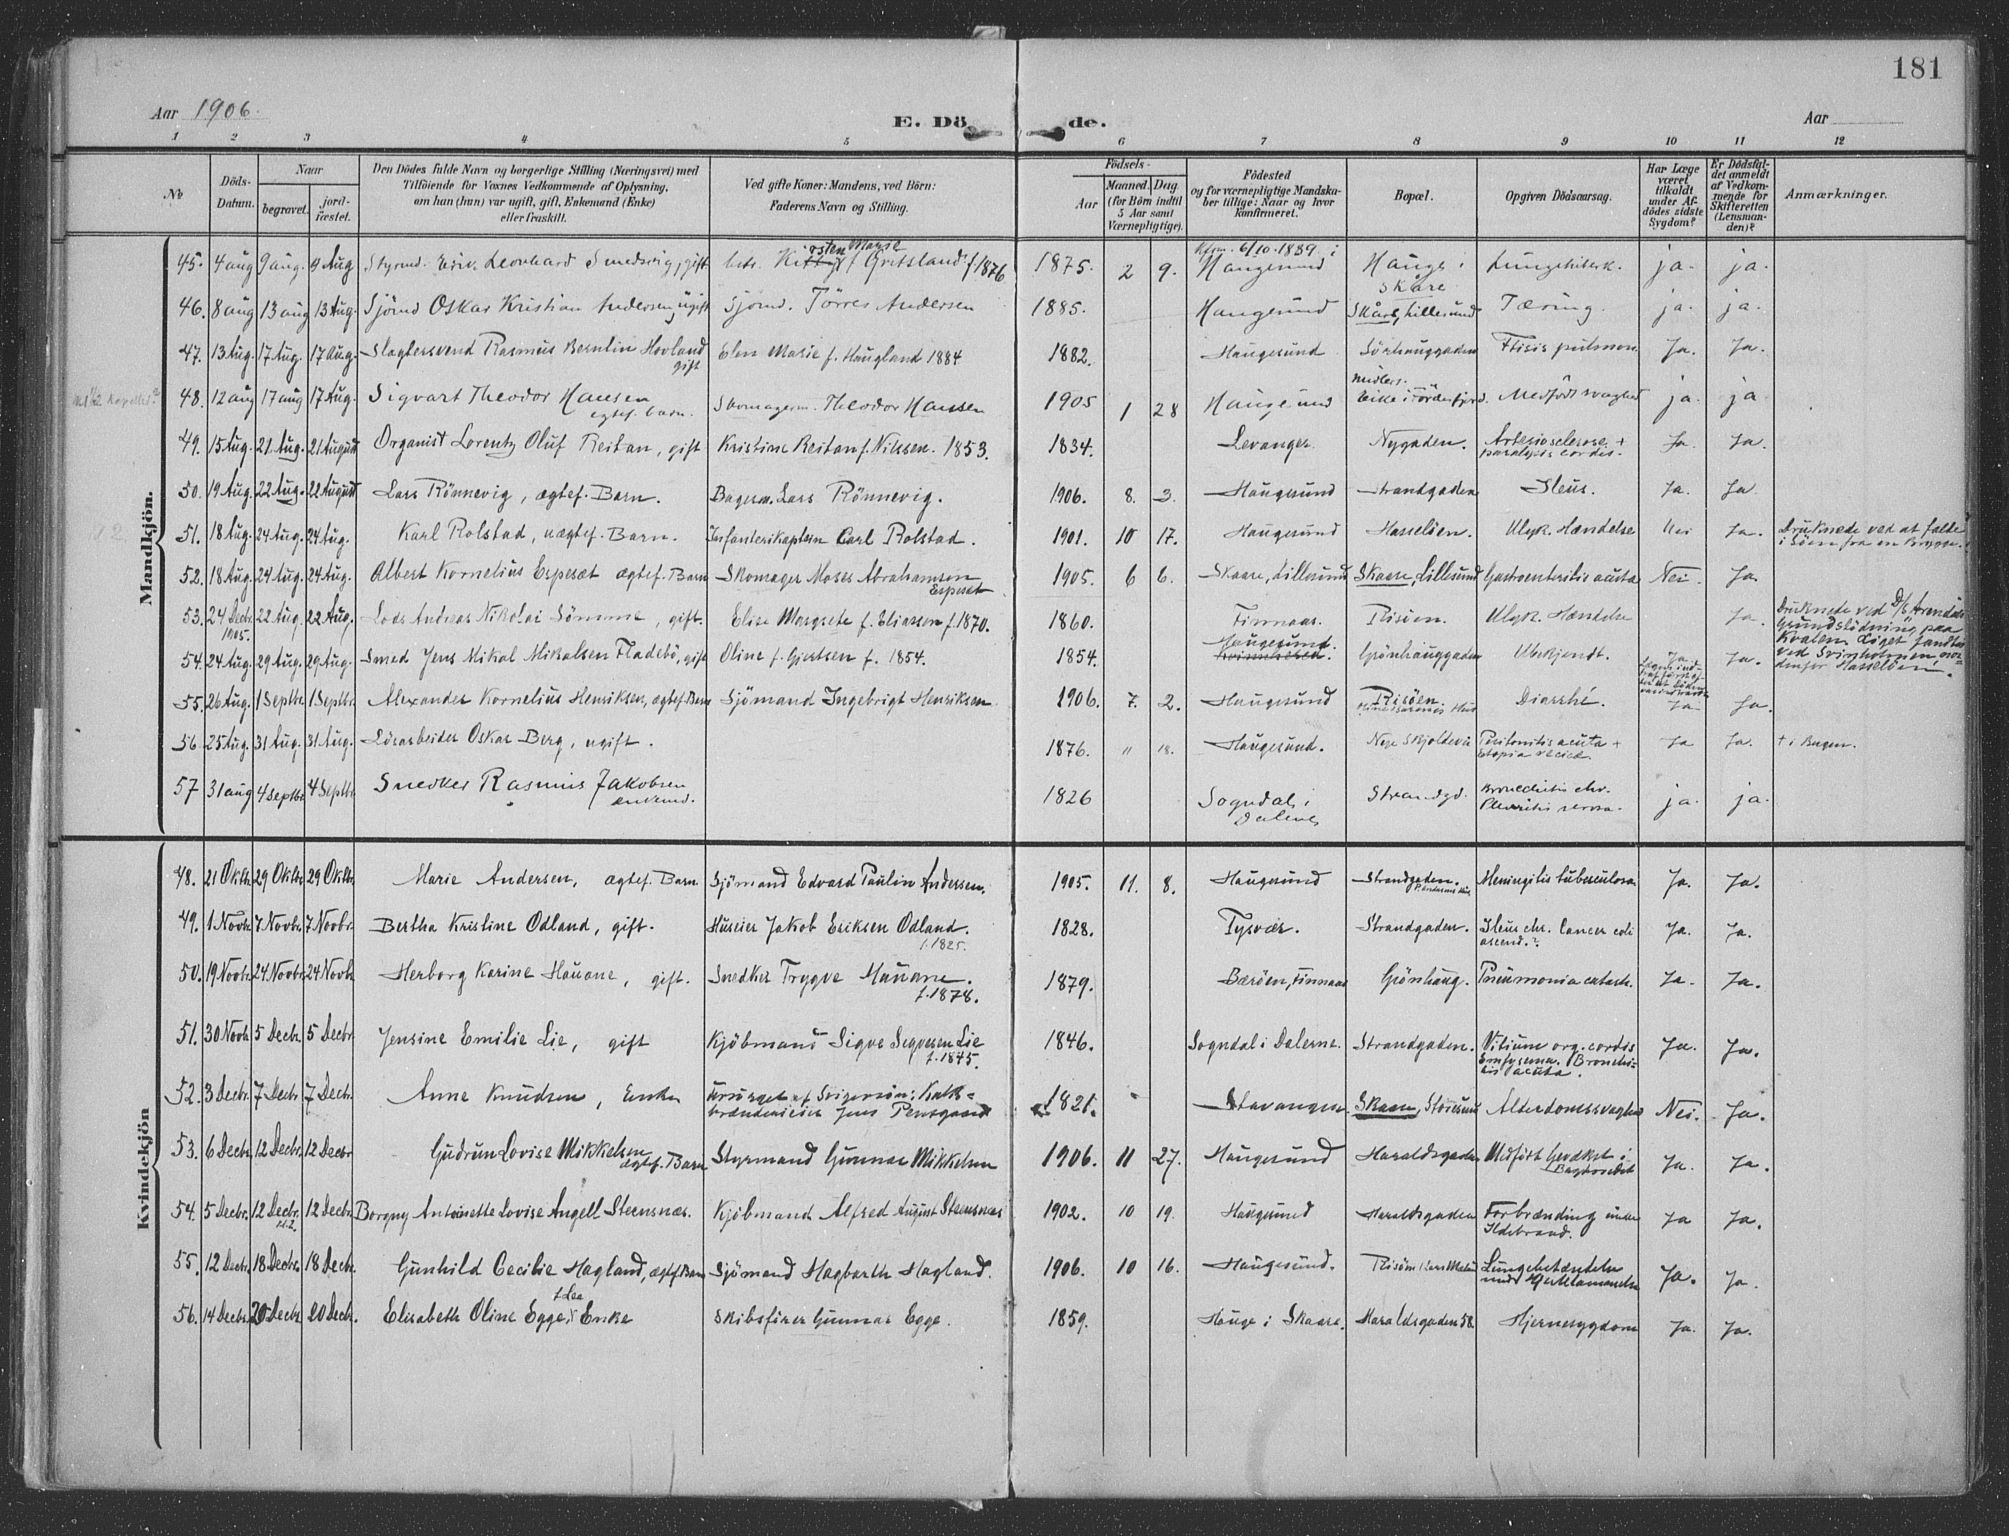 181
Aar 1906.
E. Dö de.
Aar
1 2 3 4 5 6 7 8 9 10 11 12
No
Döds-Datum.
Naar
begravet.
jord-fæstet.
Den Dödes fulde Navn og borgerlige Stilling (Næringsvei) med
Tilföiende for Voxnes Vedkommende af Oplysning,
om han (hun) var ugift, gift, Enkemand (Enke)
eller fraskilt.
Ved gifte Koner: Mandens, ved Börn:
Faderens Navn og Stilling.
Födsels-
Aar
Maaned. Dag
(for Börn indtil
5 Aar samt
Værnepligtige).
Födested
og for værnepligtige Mandska-
ber tillige: Naar og hvor
konfirmeret.
Bopæl.
Opgiven Dödsaarsag.
Har Læge
været
tilkaldt
under Af-
dödes sidste
Sygdom?
Er Dödsfal-
det anmeldt
af Vedkom-
mende for
Skifteretten
(Lensman-
den)?
Anmærkninger.
Mandkjön.
45. 4 aug 9 aug. 9 Aug Styrmd. Leonhard Smedsvig, gift Marie f. Gritsland f 1876 1875. 2 9. Kfm. 6/10-1889 i Haugesund Hauge i Skåre ja. ja.
46. 8 aug 13 aug 13 Aug. Sjömd Oskar Kristian Andersen ugift Sjömd. Törres Andersen 1885. Haugesund Skåre, Lillesund Tæring. ja. ja.
47. 13 Aug. 17 Aug. 17 Aug. Slagtersvend Rasmus Berntin Hovland gift Elen Marie f. Haugland 1884 1882. Haugesund Sörhauggaden Ftisis pulmon. Ja. Ja.
48. 12 aug 17 aug 17 Aug. Sigvart Theodor Hansen egtef. barn. Skomagerm. Theodor Hansen 1905 1 28 Haugesund midlers. Eike i Förde fjord. Medfödt svaghed ja ja
49. 15 Aug. 21 Aug. 21 August Organist Lorentz Oluf Reitan, gift Kristine Reitan f. Nilssen. 1853. 1834. Levanger Nygaden. Arteriosclerose + paralysis cordis. Ja. Ja.
50. 19 Aug. 22 Aug. 22 August Lars Rönnevig, ægtef. Barn. Bagerm. Lars Rönnevig. 1906. 8. 3. Haugesund Strandgaden Ileus. Ja. Ja
51. 18 Aug. 24 Aug. 24 Aug. Karl Rolstad, uægtef. Barn. Infanterikaptein Carl Rolstad. 1901. 10 17. Haugesund Hasselöen. Ulyk. Hændelse Nei Ja. Druknede ved at falde i Söen fra en Brygge.
52. 18 Aug. 24 Aug. 24 Aug. Albert Kornelius Espesæt ægtef. Barn Skomager Moses Abrahamsen Espesæt 1905. 6 6. Skaare, Lillesund Skaare, Lillesund Gastroenteritis acuta Nei. Ja.
53. 24 Decbr. 1905. 22 Aug. 22 Aug. Lods Andreas Nikolai Sömme, gift. Elise Margrete f. Eliassen f. 1870. 1860. Finnaas. Risöen. Ulyk. Hændelse Ja. Druknede ved D/S Arendals Grundstödning paa Kvalen. Liget fandtes ved Svinholmen nordenfor Hasselöen.
54. 24 Aug. 29 Aug. 29 Aug. Smed Jens Mikal Mikalsen Fladebö, gift Oline f. Gjertsen f. 1854. 1854. Haugesund. Grönhauggaden Ubekjendt. Ja Ja.
55. 26 Aug. 1 Septbr. 1 Septbr. Alexander Kornelius Henriksen, ægtef. Barn Sjömand Ingebrigt Henriksen 1906. 7. 2. Haugesund Risöen Diarrhé. Ja Ja.
56. 25 Aug. 31 Aug. 31 Aug. Lösarbeider Oskar Berg, ugift. 1876. " 18. Haugesund. Nær Skjoldevei Peritonitis acuta + Ja Ja. + i Bugen.
57 31 aug 4 Septbr. 4 Septbr. Snedker Rasmus Jakobsen enkemd. 1826 Sogndal i Dalene Strandgd. Bronchitis chr. Pleuritis serosa. ja. ja.
Kvindekjön
48. 21 Oktb. 29 Oktb. 29 Oktb. Marie Andersen, ægtef. Barn Sjömand Edvard Paulin Andersen. 1905. 11. 8. Haugesund Strandgaden. Meningitis tuberculosa Ja. Ja.
49. 1 Novbr. 7 Novbr. 7 Novbr. Bertha Kristine Odland, gift. Huseier Jakob Eriksen Odland. f. 1825. 1828. Tysvær. Strandgaden. Ileus chr. Cancer coli ascend.? Ja. Ja.
50. 19 Novbr. 24 Novbr. 24 Novbr. Herborg Karine Hauane, gift. Snedker Trygve Hauane. f. 1878. 1879. Bæröen, Finnaas Grönhaug. Pneumonia catarrh. Ja. Ja.
51. 30 Novb. 5 Decbr. 5 Decbr Jensine Emilie Lie, gift Kjöbmand Sigve Segvesen Lie f. 1845. 1846. Sogndal i Dalerne. Strandgaden. Vitium org. cordis Emfysema. Bronchitis acuta. Ja. Ja.
52. 3 Decbr. 7 Decbr. 7 Decbr. Anne Knudsen, Enke Forsörget af Svigersön: Kalkbrænderieier Jens Pentgaard 1821. Stavanger Skaare, Storesund Alderdomssvaghed Nei. Ja.
53. 6 Decbr. 12 Decbr. 12 Decbr Gudrun Lovise Mikkelsen ægtef. Barn Styrmand Gunnar Mikkelsen 1906. 11 27. Haugesund Haraldsgaden Medfödt Ja. Ja.
54. 5 Decbr. 12 Decbr. 12 Decbr. Borgny Antoinette Lovise Angell Steensnæs. Kjöbmand Alfred August Steensnæs 1902. 10 19. Haugesund Haraldsgaden Forbrænding under Ildebrand. Ja Ja.
55. 12 Decbr. 18 Decbr. 18 Decbr. Gunhild Cecilie Hagland, ægtef. Barn Sjömand Hagbarth Hagland. 1906. 10 16. Haugesund. Lungebetændelse Ja. Ja.
56. 14 Decbr. 20 Decbr. 20 Decbr. Elisabeth Oline Egge, f. Lea Enke Skibsförer Gunnar Egge. 1859. Hauge i Skaare. Haraldsgaden 58. Hjernesygdom Ja. Ja.